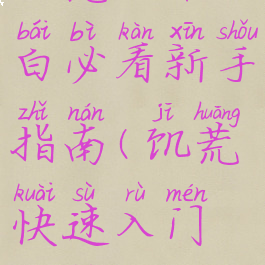 bái bì kàn xīn shǒu
白必看新手
zhǐ nán jī huāng
指南(饥荒
kuài sù rù mén
快速入门